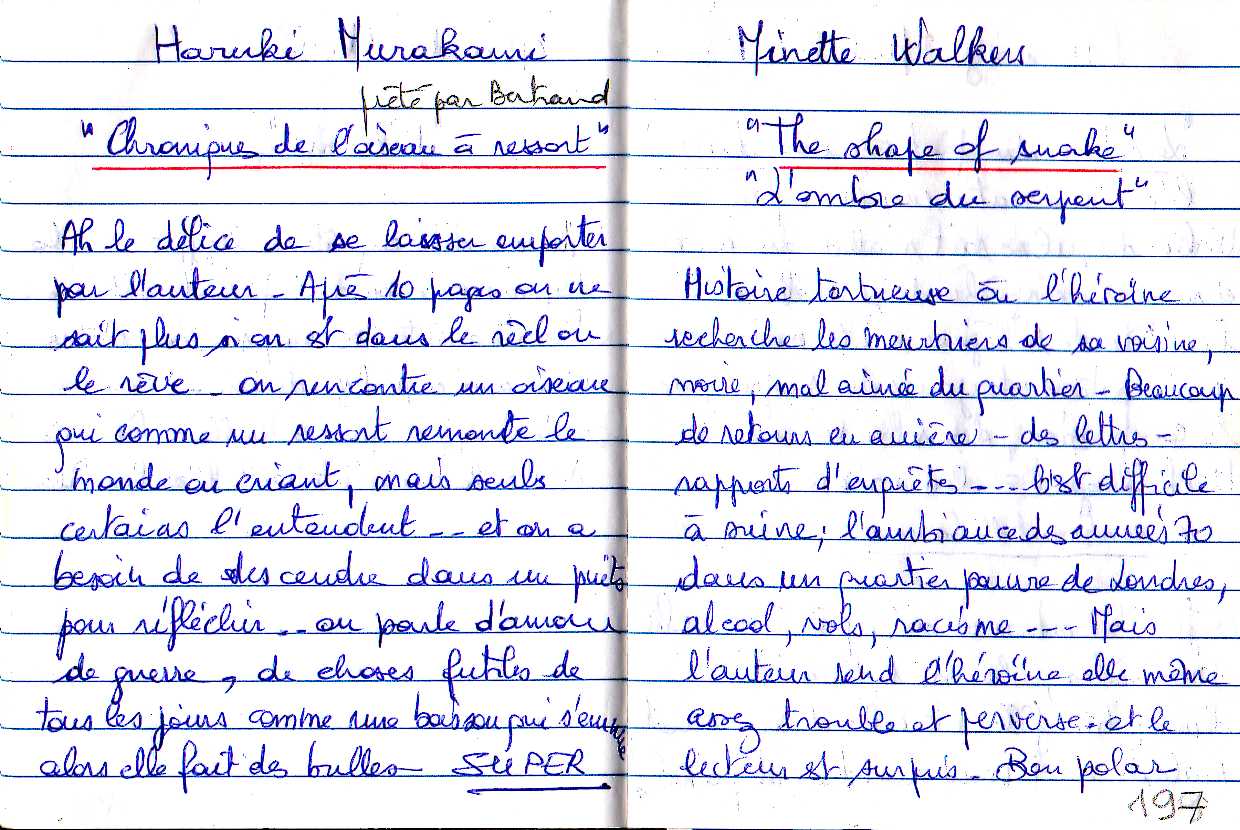 Haruki Murakami
prêté par Bertrand
"Chroniques de l'oiseau à ressort"
Ah le délice de se laisser emporter
par l'auteur - Après 10 pages on ne
sait plus si on est dans le réel ou
le rêve - on rencontre un oiseau
qui comme un ressort remonte le
monde en criant, mais seuls
certains l'entendent -- et on a
besoin de descendre dans un puits
pour réfléchir -- on parle d'amour
de guerre, de choses futiles de
tous les jours comme une boisson qui s'ennuie
alors elle fait des bulles - SUPER
Minette Walkers
"The shape of snake"
"L'ombre du serpent"
Histoire tortueuse où l'héroïne
recherche les meurtriers de sa voisine,
noire, mal aimée du quartier - Beaucoup
de retours en arrière - des lettres -
rapports d'enquêtes --- C'est difficile
à suivre ; l'ambiance des années 70
dans un quartier pauvre de Londres,
alcool, vols, racisme --- Mais
l'auteur rend l'héroïne elle même
assez trouble et perverse - et le
lecteur est surpris - Bon polar
197